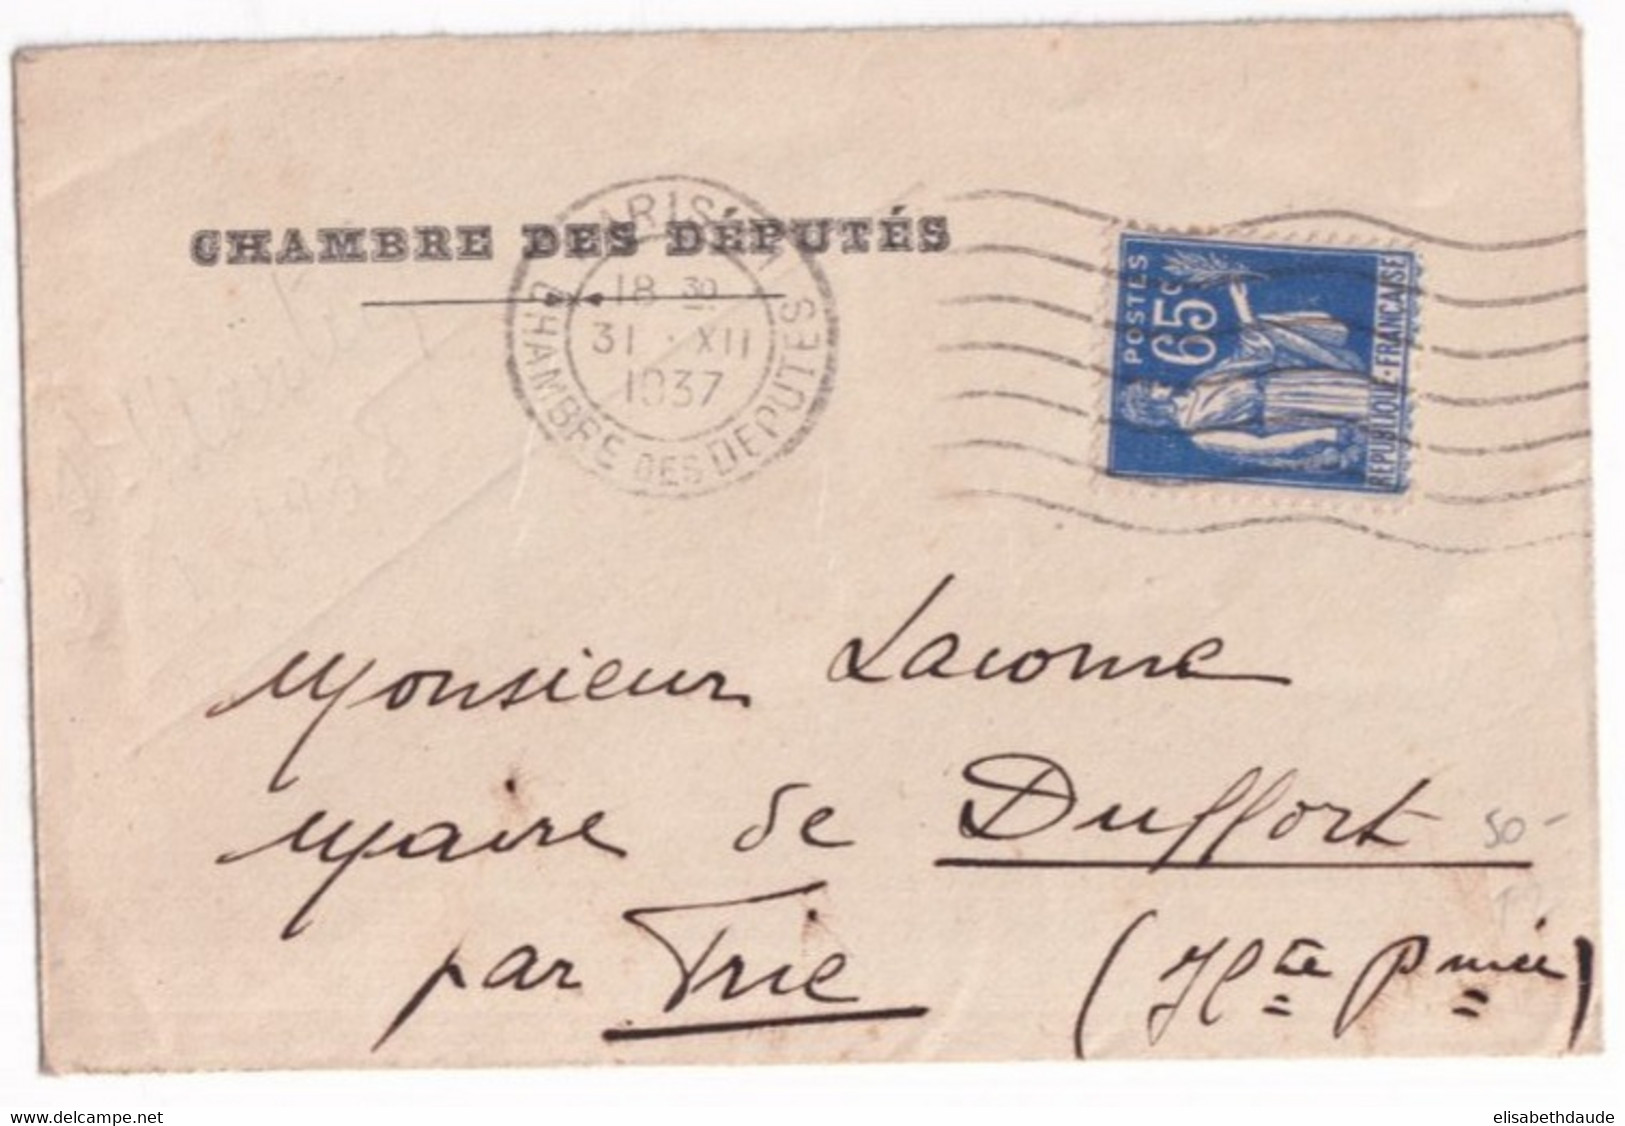 CHAMBRE DES DÉPUTÉS
PARIS
18 30
31 · XII
1937
CHAMBRE DES DEPUTES
POSTES
65c
REPUBLIQUE·FRANCAISE
Monsieur Lacome
Maire de Duffort
50-
par Trie (Hte Pnée)
www.delcampe.net
elisabethdaude